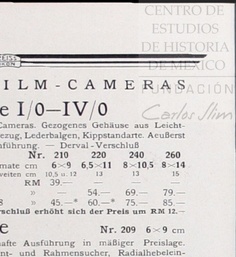 CENTRO DE
ESTUDIOS
DE HISTORIA
DE MÉXICO
FUNDACIÓN
Carlos Slim
ZEISS
IKON
FILM-CAMERAS
e I/0—IV/0
Cameras. Gezogenes Gehäuse aus Leicht-
ezug, Lederbalgen, Kippstandarte. Äußerst
führung. — Derval-Verschluß
Nr. 210 220 240 260
mate cm 6×9 6,5×11 8×10,5 8×14
weiten cm 10,5 u. 12 13 13 15
RM 39.— — — —
» — 54.— 69.— 79.—
8 » 45.—* 60.—* 75.— 85.—
rschluß erhöht sich der Preis um RM 12.—
e Nr. 209 6×9 cm
afte Ausführung in mäßiger Preislage.
nt- und Rahmensucher, Radialhebelein-